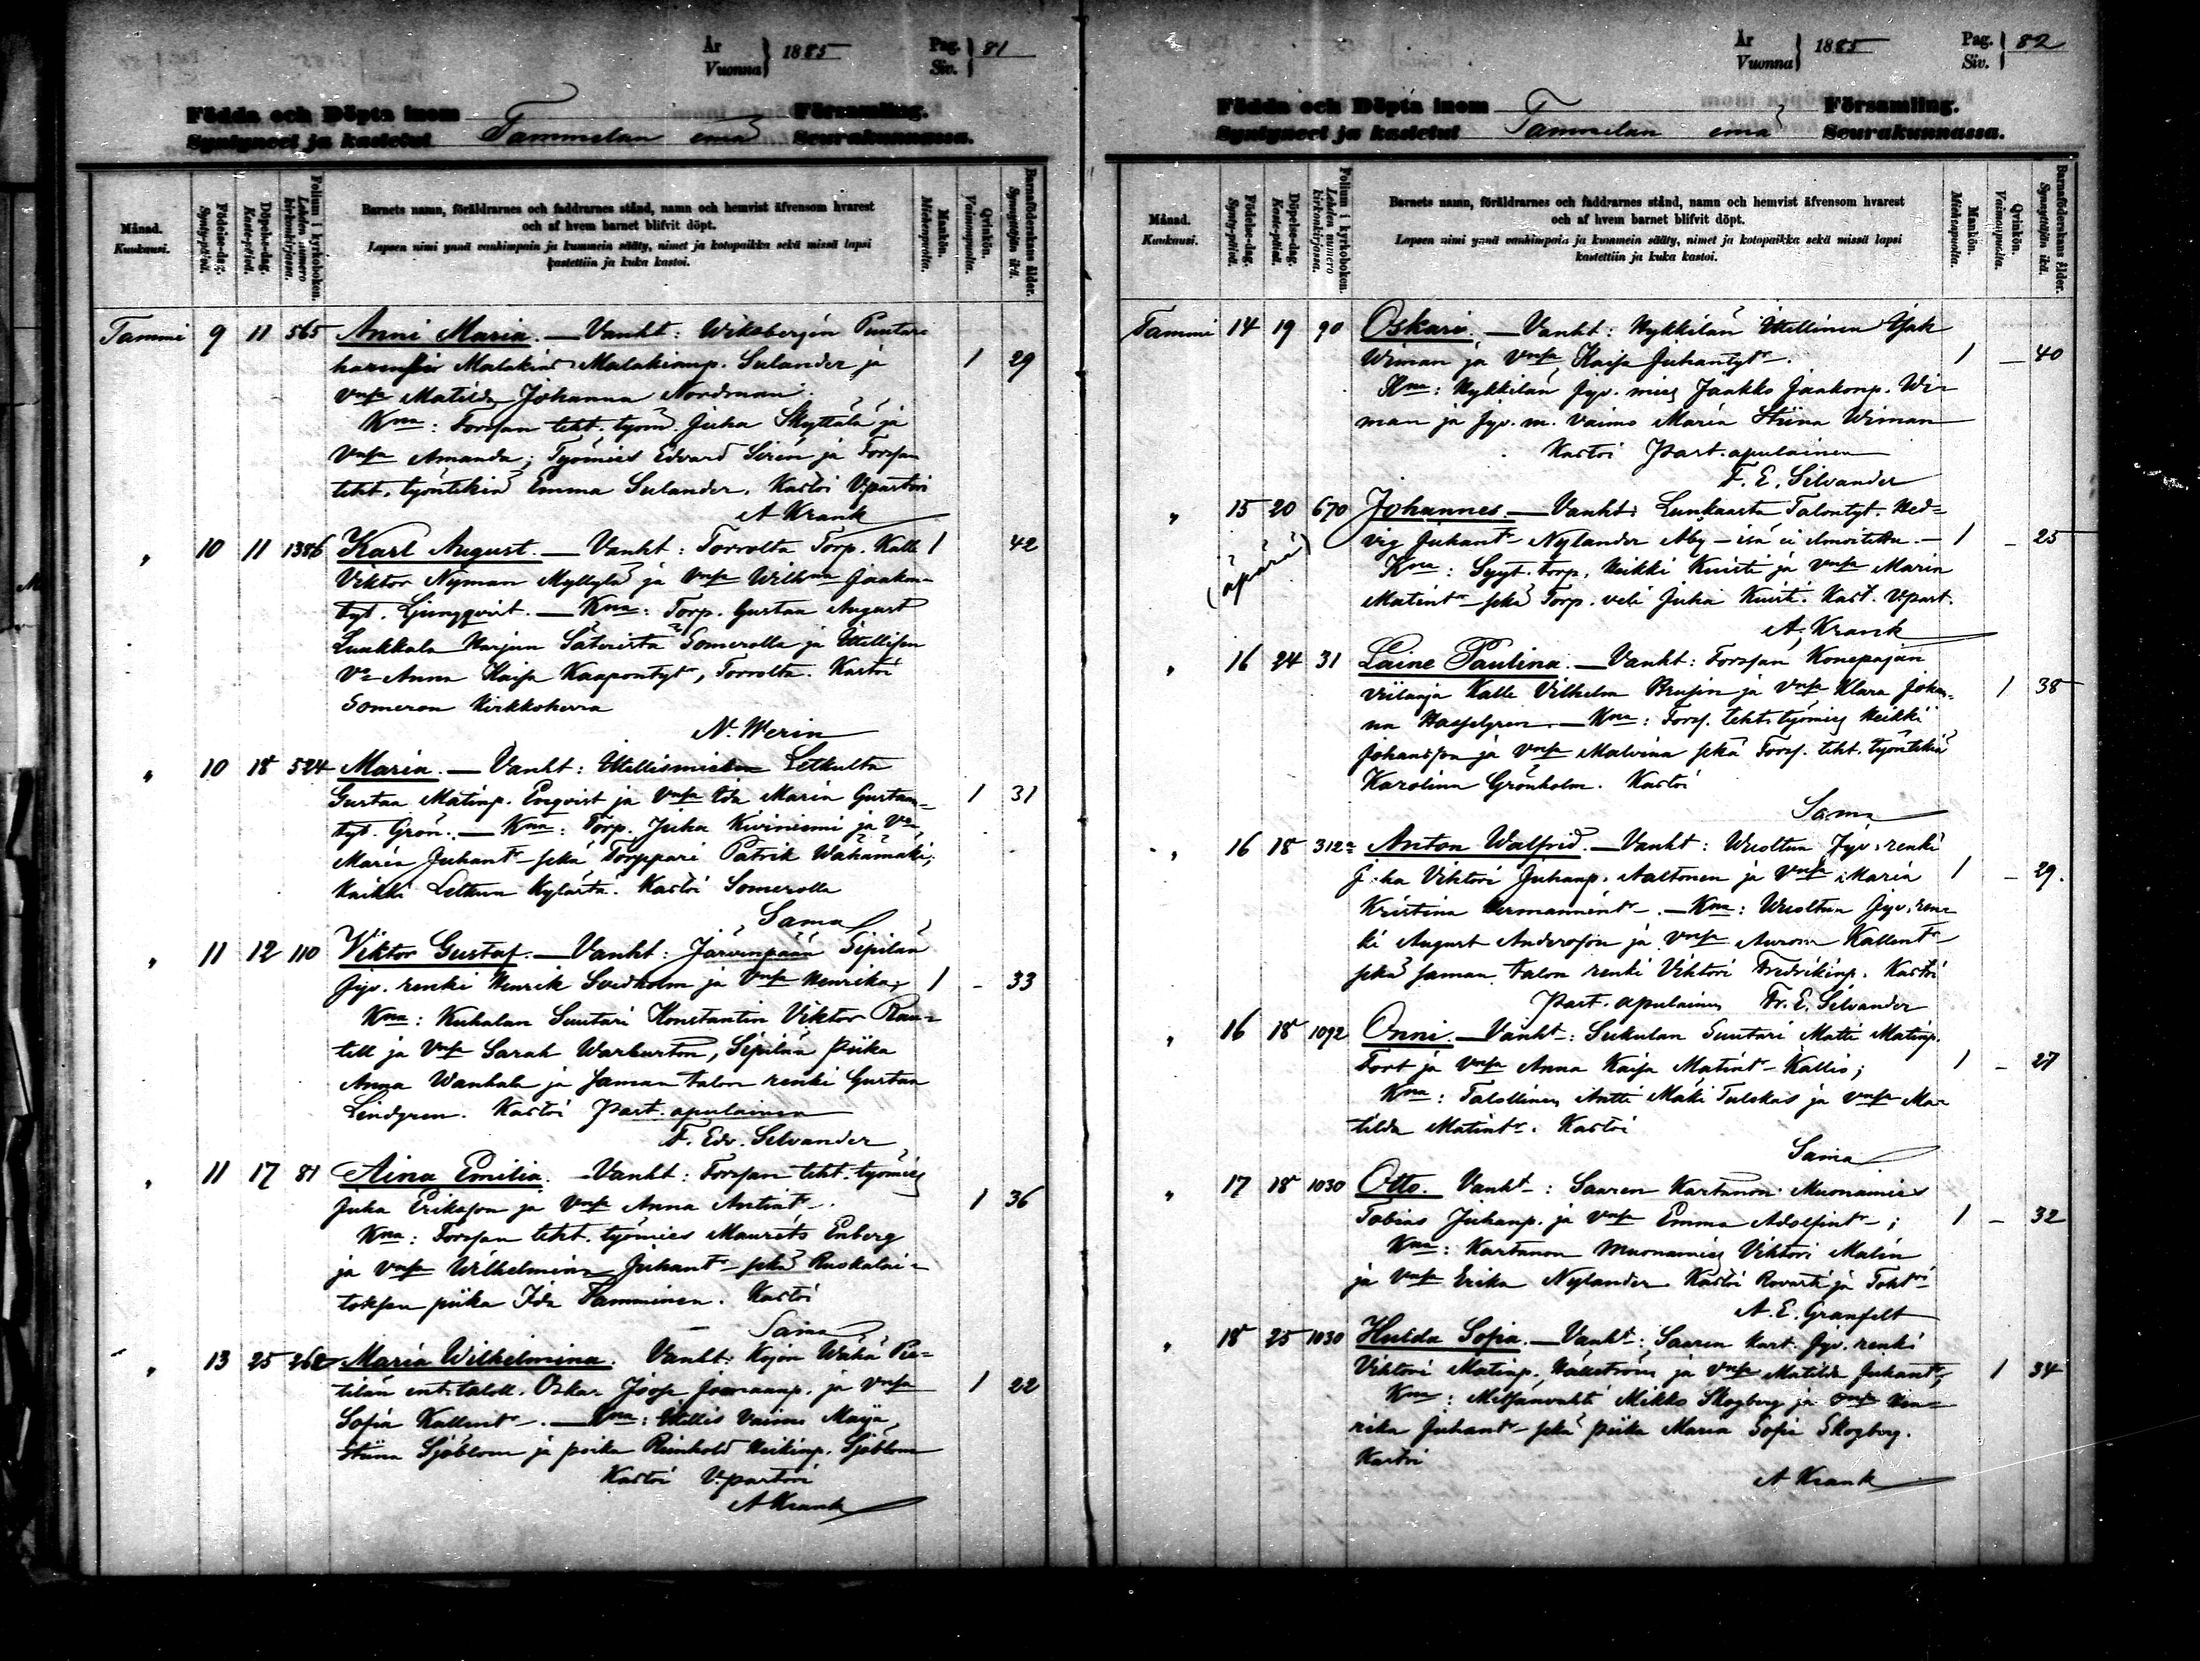 År
Vuonna } 1885
Pag.
Siv. } 81
Födda och Döpta inom
Syntyneet ja kastetut
Tammelan emä
Församling.
Seurakunnassa.
Månad.
Kuukausi.
Födelse-dag.
Synty-päivä.
Döpelse-dag.
Kaste-päivä.
Folium i kyrkoboken.
Lehden numero
kirkonkirjassa.
Barnets namn, föräldrarnes och faddrarnes stånd, namn och hemvist äfvensom hvarest
och af hvem barnet blifvit döpt.
Lapsen nimi ynnä vanhimpain ja kummein sääty, nimet ja kotopaikka sekä missä lapsi
kastettiin ja kuka kastoi.
Mankön.
Miehenpuolta.
Qvinkön.
Vaimonpuolta.
Barnaföderskans ålder.
Synnyttäjän ikä.
Tammi 9 11 565 Anni Maria. — Vanht: Wiksbergin Puutar-
Malakias Malakianp. Sulander ja 1 29
vmsa Matilda Johanna Nordman.
Kmt: Forssan teht. työm. Juha Skyttälä ja
Vmsa Amanda; Työmies Edvard Sirén ja Forssan
teht. työntekiä Emma Sulander. Kastoi V:pastori
A Krank
" 10 11 1386 Karl August. — Vanht: Torrolta Torp. Kalle 1 42
Viktor Nyman Myllylä ja Vmsa Wilhma Jaakon-
tyt. Ljungqvist. — Kmt: Torp. Gustaa August
Luukkala Harjun Säteristä Somerolla ja Itsellisen
Vo Anna Kaisa Kaapontytr, Torrolta. Kastoi
Someron Kirkkoherra
N. Werin
" 10 18 524 Maria. — Vanht: Itsellismies Letkulta
Gustaa Matinp. Enqvist ja Vmsa Ida Maria Gustaan- 1 31
tyt. Grön. — Kmt: Torp. Juha Kiviniemi ja Vo
Maria Juhantr sekä Torppari Patrik Wähämäki;
kaikki Letkun kylästä. Kastoi Somerolla
Sama
" 11 12 110 Viktor Gustaf. — Vanht: Järvenpään Sipilän
Jyv. renki Henrik Svedholm ja Vmsa Henrika; 1 - 33
Kmt: Kuhalan Suutari Konstantin Viktor Ran-
tell ja Vmsa Sarah Warburton, Sipilän piika
Anna Wanhala ja saman talon renki Gustaa
Lindgren. Kastoi Past. apulainen
F. Edv. Silvander
" 11 17 81 Aina Emilia. — Vanht: Forssan teht. työmies
Juha Eriksson ja Vmsa Anna Antint. 1 36
Kmt: Forssan teht. työmies Maurits Enberg
ja Vmsa Wilhelmina Juhantr sekä Ruskalai-
toksen piika Ida Tamminen. Kastoi
Sama
" 13 25 262 Maria Wilhelmina. Vanht: Kojon Wähä Pie-
tilän ent. taloll. Oskar Joosep ja Vmsa 1 22
Sofia Kallentr. — Kmt: Itsellis vaimo Maija
Stiina Sjöblom ja poika Reinhold Heikinp. Sjöblom
Kastoi V:pastori
A Krank
År
Vuonna } 1885
Pag.
Siv. } 82
Födda och Döpta inom
Syntyneet ja kastetut
Tammelan emä
Församling.
Seurakunnassa.
Månad.
Kuukausi.
Födelse-dag.
Synty-päivä.
Döpelse-dag.
Kaste-päivä.
Folium i kyrkoboken.
Lehden numero
kirkonkirjassa.
Barnets namn, föräldrarnes och faddrarnes stånd, namn och hemvist äfvensom hvarest
och af hvem barnet blifvit döpt.
Lapsen nimi ynnä vanhimpain ja kummein sääty, nimet ja kotopaikka sekä missä lapsi
kastettiin ja kuka kastoi.
Mankön.
Miehenpuolta.
Qvinkön.
Vaimonpuolta.
Barnaföderskans ålder.
Synnyttäjän ikä.
Tammi 14 19 90 Oskari. — Vanht: Hykkilän Itsellinen Isak
Wiman ja Vmsa Kaisa Juhantytr. 1 — 40
Kmt: Hykkilän Jyv. mies Jaakko Jaakonp. Wi-
man ja Jyv. m. vaimo Maria Stiina Wiman
Kastoi Past. apulainen
F. E. Silvander
" 15 20 670 Johannes. — Vanht: Lunkaasta Talontyt. Hed-
(äpärä) vig Juhantr Nylander Aby — isä ei ilmoitettu. — 1 - 25
Kmt: Syyt. torp. Heikki Knisti ja Vmsa Maria
Matintr sekä Torp. veli Juha Knisti. Kast. V:past.
A. Krank
" 16 24 31 Laine Paulina. — Vanht: Forssan Konepajan
viilaaja Kalle Vilhelm Brusin ja Vmsa Klara Johan- 1 38
na Hasselgren. — Kmt: Forss. teht. työmies Heikki
Johansson ja Vmsa Malvina sekä Forss. teht. työntekiä
Karolina Grönholm. Kastoi
Sama
" 16 18 312 Anton Walfrid. — Vanht: Jyv. renki
Juha Viktori Juhanp. Aaltonen ja Vmsa Maria 1 — 29.
Kristina Hermannintr. — Kmt: Jyv. ren-
ki August Andersson ja Vmsa Aurora Kallentr
sekä saman talon renki Viktori Fredrikinp. Kastoi
Past. apulainen Fr. E. Silvander
" 16 18 1092 Onni. — Vanht: Sukulan Suutari Matti Matinp.
Fort ja Vmsa Anna Kaisa Matintr Kallio; 1 — 27
Kmt: Talollinen Antti Mäki Tulokas ja Vmsa Ma-
tilda Matintr. Kastoi
Sama
" 17 18 1030 Otto. Vanht: Saaren Kartanon Muonamies
Tobias Juhanp. ja Vmsa Emma Adolfintr; 1 — 32
Kmt: Kartanon muonamies Viktori Malin
ja Vmsa Erika Nylander Kastoi Rovasti ja Tohtri
A. E. Granfelt
" 18 25 1030 Hulda Sofia. — Vanht: Saaren kart. Jyv. renki
Viktori Matinp. Hällström ja Vmsa Matilda Juhantr; 1 34
Kmt: Metsänvahti Mikko Skogberg ja Vmsa Hen-
rika Juhantr sekä piika Maria Sofia Skogberg.
Kastoi
A Krank